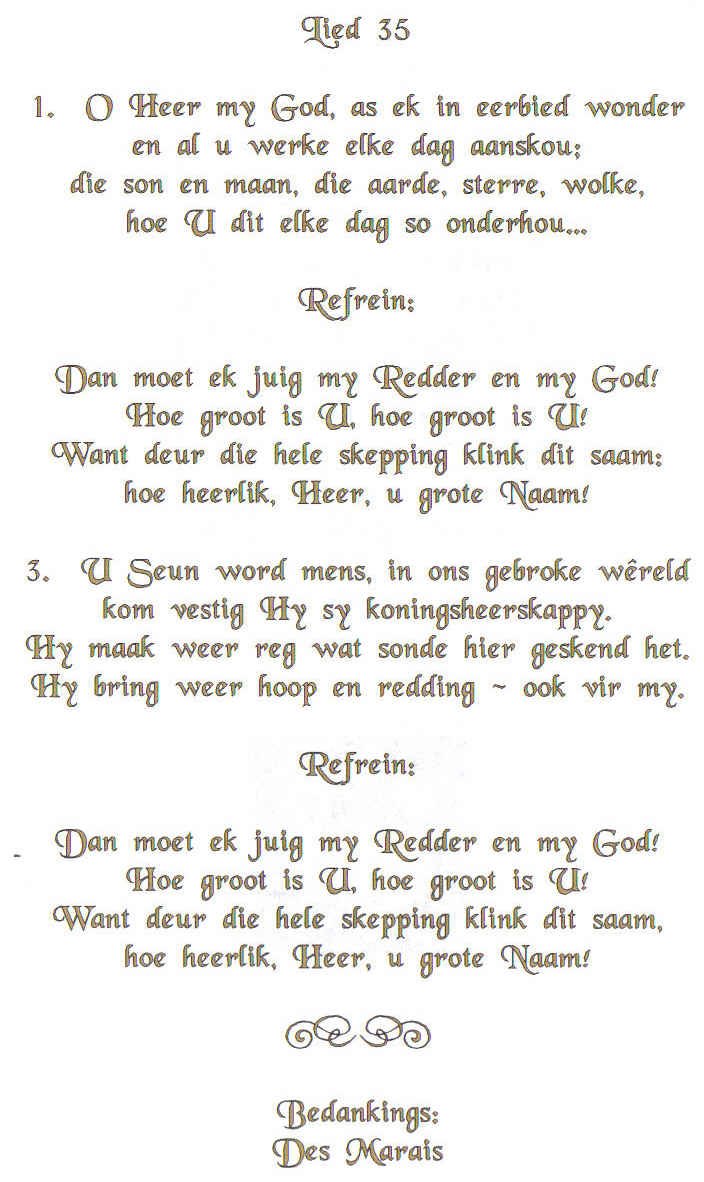 Lied 35
1. O Heer my God, as ek in eerbied wonder
en al u werke elke dag aanskou;
die son en maan, die aarde, sterre, wolke,
hoe U dit elke dag so onderhou...
Refrein:
Dan moet ek juig my Redder en my God!
Hoe groot is U, hoe groot is U!
Want deur die hele skepping klink dit saam:
hoe heerlik, Heer, u grote Naam!
3. U Seun word mens, in ons gebroke wêreld
kom vestig Hy sy koningsheerskappy.
Hy maak weer reg wat sonde hier geskend het.
Hy bring weer hoop en redding ~ ook vir my.
Refrein:
Dan moet ek juig my Redder en my God!
Hoe groot is U, hoe groot is U!
Want deur die hele skepping klink dit saam,
hoe heerlik, Heer, u grote Naam!
Bedankings:
Des Marais